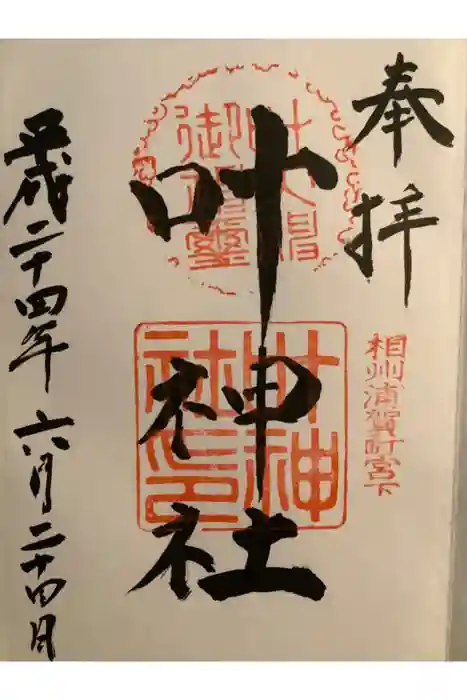 奉拝
相州浦賀町宮下
叶神社
叶神社印
平成二十四年六月二十四日